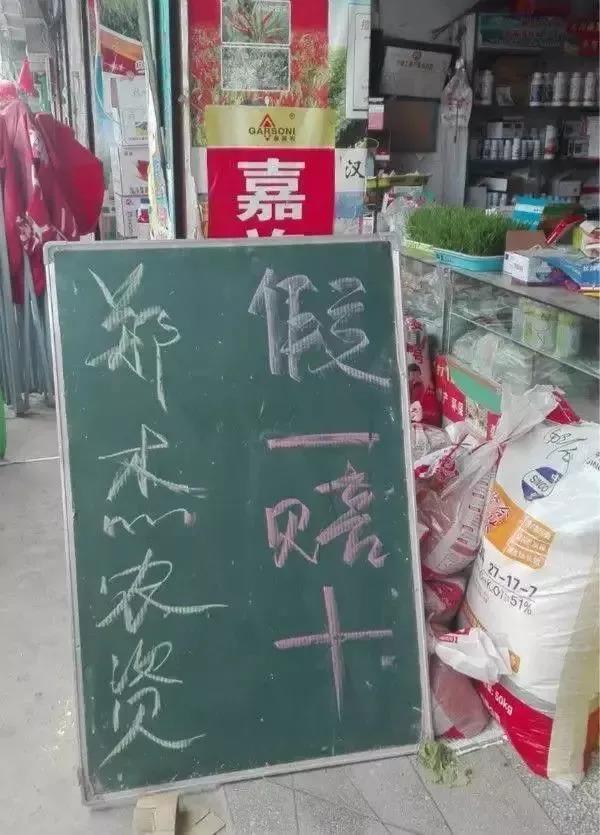 GARSONI
嘉
汉
假一赔十
郑杰农资
27-17-7
≥51%
50kg